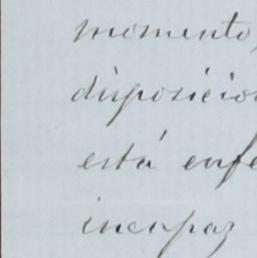 momento,
disposicion
está enfe
incapaz